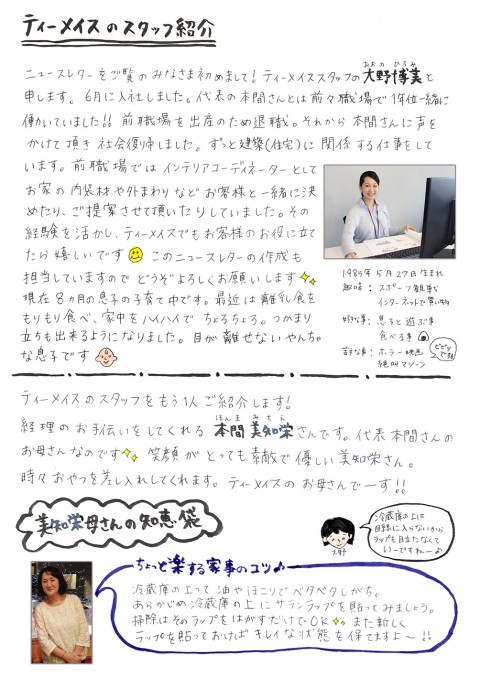 ティーメイスのスタッフ紹介
ニュースレターをご覧のみなさま初めまして！ティーメイススタッフの大野博美と
おおの ひろみ
申します。6月に入社しました。代表の本間さんとは前々職場で1年位一緒に
働いていました!! 前職場を出産のため退職。それから本間さんに声を
かけて頂き社会復帰しました。ずっと建築(住宅)に関係する仕事をして
います。前職場ではインテリアコーディネーターとして
お家の内装材や外まわりなどお客様と一緒に決
めたり、ご提案させて頂いたりしていました。その
経験を活かし、ティーメイスでもお客様のお役に立て
たら嬉しいです このニュースレターの作成も
担当していますのでどうぞよろしくお願いします
現在8ヵ月の息子の子育て中です。最近は離乳食を
もりもり食べ、家中をハイハイでちょろちょろ。つかまり
立ちも出来るようになりました。目が離せないやんちゃ
な息子です
1985年5月27日生まれ
趣味：スポーツ観戦
インターネットで買い物
好きな事：息子と遊ぶ事
食べる事
苦手な事：ホラー映画
絶叫マシーン
ビビリです
ティーメイスのスタッフをもう1人ご紹介します！
経理のお手伝いをしてくれる 本間美知栄さんです。代表本間さんの
ほんま みちえ
お母さんなのです 笑顔がとっても素敵で優しい美知栄さん。
時々おやつを差し入れてくれます。ティーメイスのお母さんでーす!!
美知栄母さんの知恵袋
大野
冷蔵庫の上は
目線に入らないから
ラップも目立たなくて
いーですねー♪
ちょっと楽する家事のコツ♪
冷蔵庫の上って油やほこりでベタベタしがち。
あらかじめ冷蔵庫の上にサランラップを貼ってみましょう。
掃除はそのラップをはがすだけでOK また新しく
ラップを貼っておけばキレイな状態を保てますよ～!!